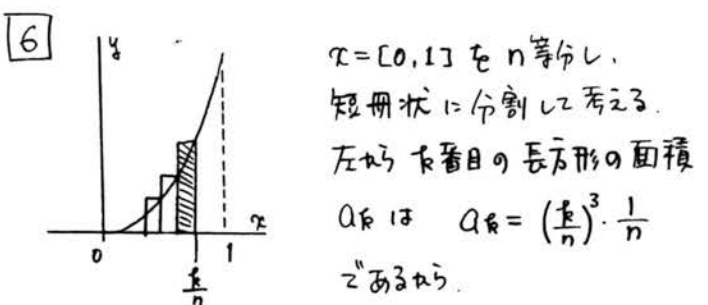 6
y
x=[0,1]をn等分し、
短冊状に分割して考える.
左からk番目の長方形の面積
akは ak=(k/n)^3・1/n
であるから.
0
k/n
1
x